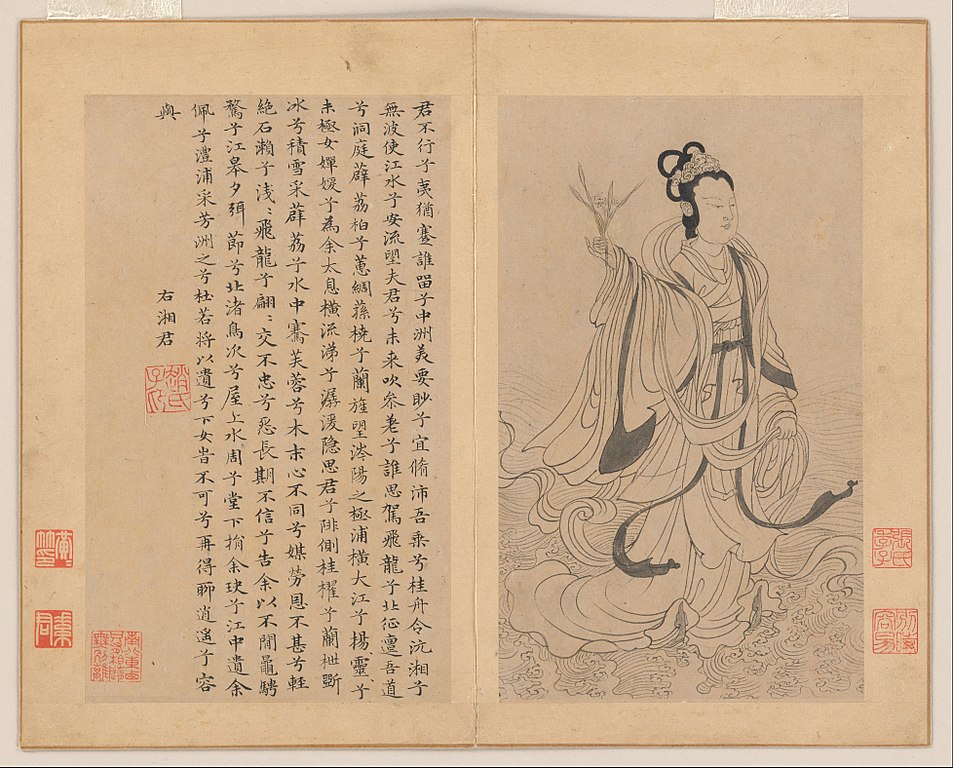 君不行兮夷猶蹇誰畱兮中洲美要眇兮宜脩沛吾乘兮桂舟令沅湘兮
無波使江水兮安流望夫君兮未来吹参差兮誰思駕飛龍兮北征邅吾道
兮洞庭薜荔柏兮蕙綢蓀橈兮蘭旌望涔陽之極浦橫大江兮楊靈兮
未極女嬋媛兮為余太息橫流涕兮潺湲隐思君兮陫側桂櫂兮蘭枻斲
冰兮積雪采薜荔兮水中搴芙蓉兮木末心不同兮媒勞恩不甚兮輕
絶石瀨兮淺〻飛龍兮翩〻交不忠兮怨長期不信兮告余以不閒鼂騁
騖兮江皋夕弭節兮北渚鳥次兮屋上水周兮堂下捐余玦兮江中遺余
佩兮澧浦采芳洲之兮杜若將以遺兮下女旹不可兮再得聊逍遥兮容
與
右湘君
趙氏子昂